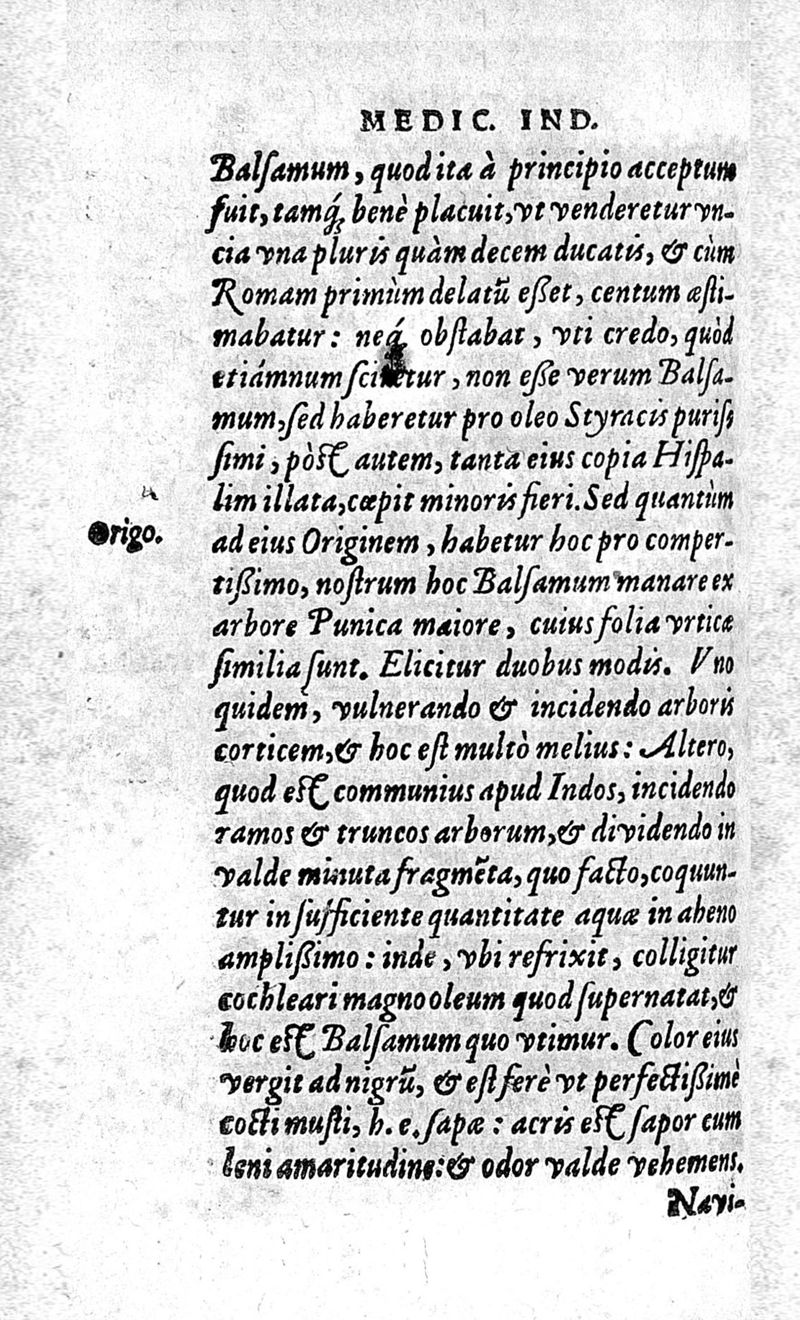 MEDIC. IND.
Balſamum, quod ita à principio acceptum
fuit, tamq́; benè placuit, vt venderetur vn-
cia vna pluris quàm decem ducatis, & cùm
Romam primùm delatũ eßet, centum æſti-
mabatur: neq́; obſtabat, vti credo, quòd
etiámnum ſciretur, non eße verum Balſa-
mum, ſed haberetur pro oleo Styracis puriſſ
ſimi, pòſt autem, tanta eius copia Hiſpa-
lim illata, cœpit minoris fieri. Sed quantùm
Origo.
ad eius Originem, habetur hoc pro comper-
tißimo, noſtrum hoc Balſamum manare ex
arbore Punica maiore, cuius folia vrticæ
ſimilia ſunt. Elicitur duobus modis. Vno
quidem, vulnerando & incidendo arboris
corticem, & hoc eſt multò melius: Altero,
quod eſt communius apud Indos, incidendo
ramos & truncos arborum, & dividendo in
valde minuta fragmẽta, quo facto, coquun-
tur in ſufficiente quantitate aquæ in aheno
amplißimo: inde, vbi refrixit, colligitur
cochleari magno oleum quod ſupernatat, &
hoc eſt Balſamum quo vtimur. Color eius
vergit ad nigrũ, & eſt ferè vt perfectißimè
cocti muſti, h. e. ſapæ: acris eſt ſapor cum
leni amaritudine: & odor valde vehemens.
Navi-